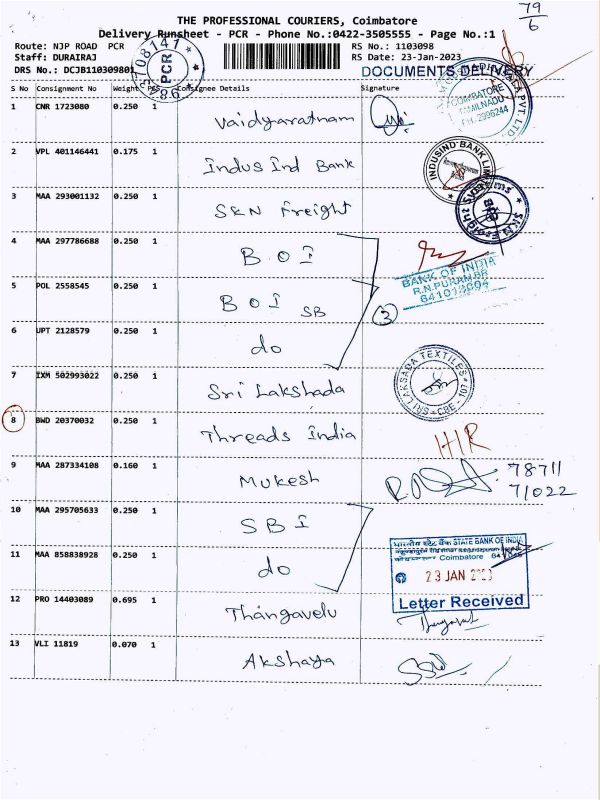 79
6
THE PROFESSIONAL COURIERS, Coimbatore
Delivery Runsheet - PCR - Phone No.:0422-3505555 - Page No.:1
Route: NJP ROAD PCR
RS No.: 1103098
Staff: DURAIRAJ
RS Date: 23-Jan-2023
DRS No.: DCJB110309801
DOCUMENTS DELIVERY
PCR
S No Consignment No Weight PCS Consignee Details Signature
1 CNR 1723080 0.250 1 Vaidyaratnam
COIMBATORE
TAMILNADU
PH: 2996244
PVT. LTD.
2 VPL 401146441 0.175 1 Indus Ind Bank
INDUSIND BANK
3 MAA 293001132 0.250 1 SKN Freight
SKN Freight
4 MAA 297786688 0.250 1 B O I
BANK OF INDIA
R.N.PURAM BR
5 POL 2558545 0.250 1 B O I SB
3
6 UPT 2128579 0.250 1 do
7 IXM 502993022 0.250 1 Sri Lakshada
SRI LAKSADA TEXTILES CBE
8 BWD 20370032 0.250 1 Threads India
HIR
9 MAA 287334108 0.160 1 Mukesh
78711
71022
10 MAA 295705633 0.250 1 S B I
भारतीय स्टेट बैंक STATE BANK OF INDIA
Coimbatore
11 MAA 858838928 0.250 1 do
23 JAN
Letter Received
12 PRO 14403089 0.695 1 Thangavelu
13 VLI 11819 0.070 1 Akshaya